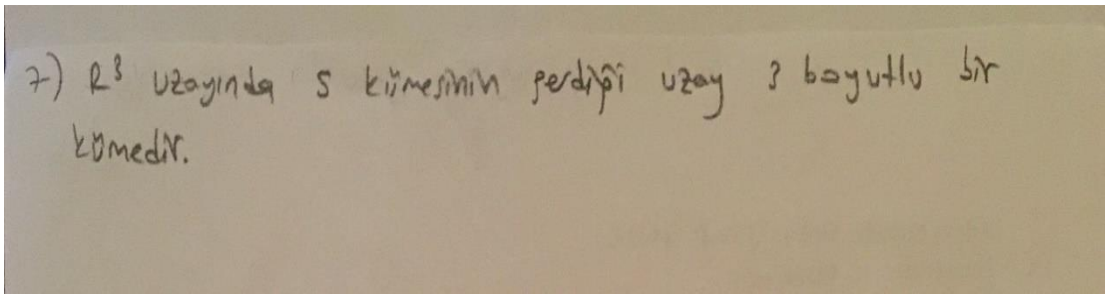 7) R³ uzayında S kümesinin gerdiği uzay 3 boyutlu bir
kümedir.